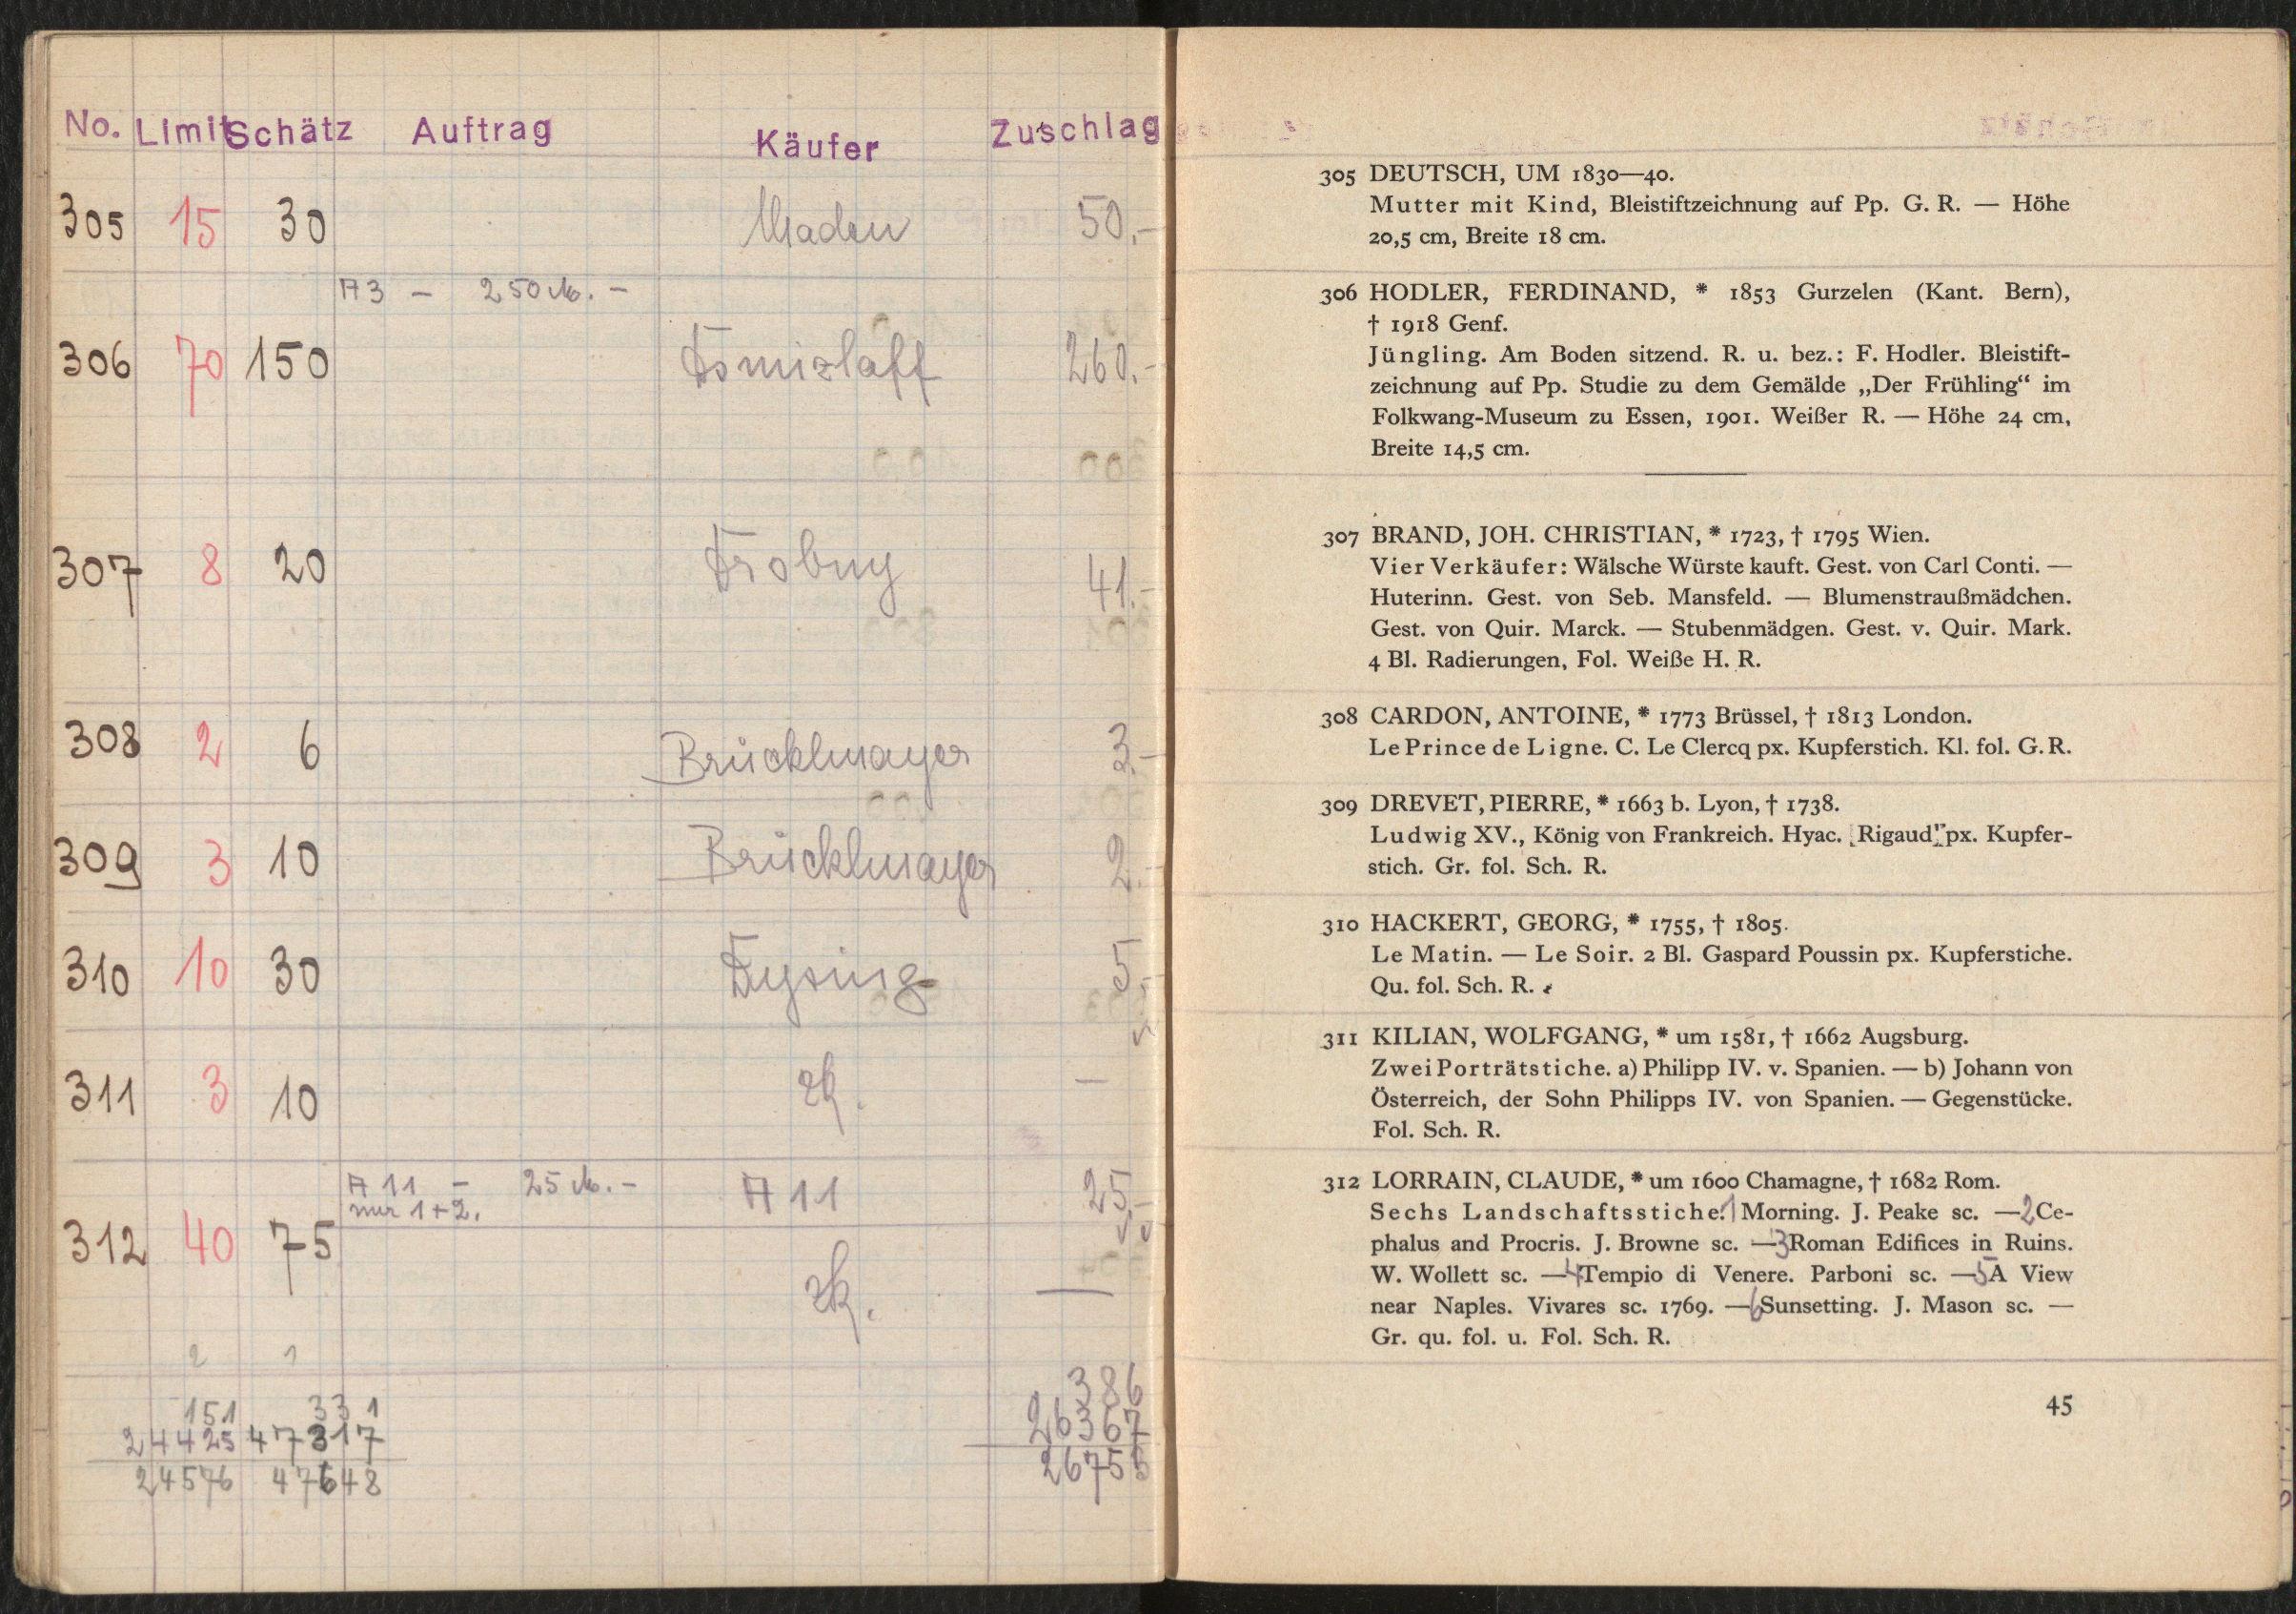 No. Limit Schätz Auftrag Käufer Zuschlag
305 15 30 Maden 50.-
A3 - 250 M. -
306 70 150 260.-
307 8 20 Drobny 41.-
308 2 6 Brücklmayer 3.-
309 3 10 Brücklmayer 2.-
310 10 30 Dysing 5.-
311 3 10 zk. —
A 11 - 25 M. - A 11 25.-
nur 1+2.
312 40 75
zk. —
2 1
386
151 331 26367
24425 47317 26753
24576 47648
305 DEUTSCH, UM 1830—40.
Mutter mit Kind, Bleistiftzeichnung auf Pp. G. R. — Höhe
20,5 cm, Breite 18 cm.
306 HODLER, FERDINAND, * 1853 Gurzelen (Kant. Bern),
† 1918 Genf.
Jüngling. Am Boden sitzend. R. u. bez.: F. Hodler. Bleistift-
zeichnung auf Pp. Studie zu dem Gemälde „Der Frühling“ im
Folkwang-Museum zu Essen, 1901. Weißer R. — Höhe 24 cm,
Breite 14,5 cm.
307 BRAND, JOH. CHRISTIAN, * 1723, † 1795 Wien.
Vier Verkäufer: Wälsche Würste kauft. Gest. von Carl Conti. —
Huterinn. Gest. von Seb. Mansfeld. — Blumenstraußmädchen.
Gest. von Quir. Marck. — Stubenmädgen. Gest. v. Quir. Mark.
4 Bl. Radierungen, Fol. Weiße H. R.
308 CARDON, ANTOINE, * 1773 Brüssel, † 1813 London.
Le Prince de Ligne. C. Le Clercq px. Kupferstich. Kl. fol. G. R.
309 DREVET, PIERRE, * 1663 b. Lyon, † 1738.
Ludwig XV., König von Frankreich. Hyac. Rigaud px. Kupfer-
stich. Gr. fol. Sch. R.
310 HACKERT, GEORG, * 1755, † 1805.
Le Matin. — Le Soir. 2 Bl. Gaspard Poussin px. Kupferstiche.
Qu. fol. Sch. R.
311 KILIAN, WOLFGANG, * um 1581, † 1662 Augsburg.
Zwei Porträtstiche. a) Philipp IV. v. Spanien. — b) Johann von
Österreich, der Sohn Philipps IV. von Spanien. — Gegenstücke.
Fol. Sch. R.
312 LORRAIN, CLAUDE, * um 1600 Chamagne, † 1682 Rom.
Sechs Landschaftsstiche: 1 Morning. J. Peake sc. — 2 Ce-
phalus and Procris. J. Browne sc. — 3 Roman Edifices in Ruins.
W. Wollett sc. — 4 Tempio di Venere. Parboni sc. — 5 A View
near Naples. Vivares sc. 1769. — 6 Sunsetting. J. Mason sc. —
Gr. qu. fol. u. Fol. Sch. R.
45